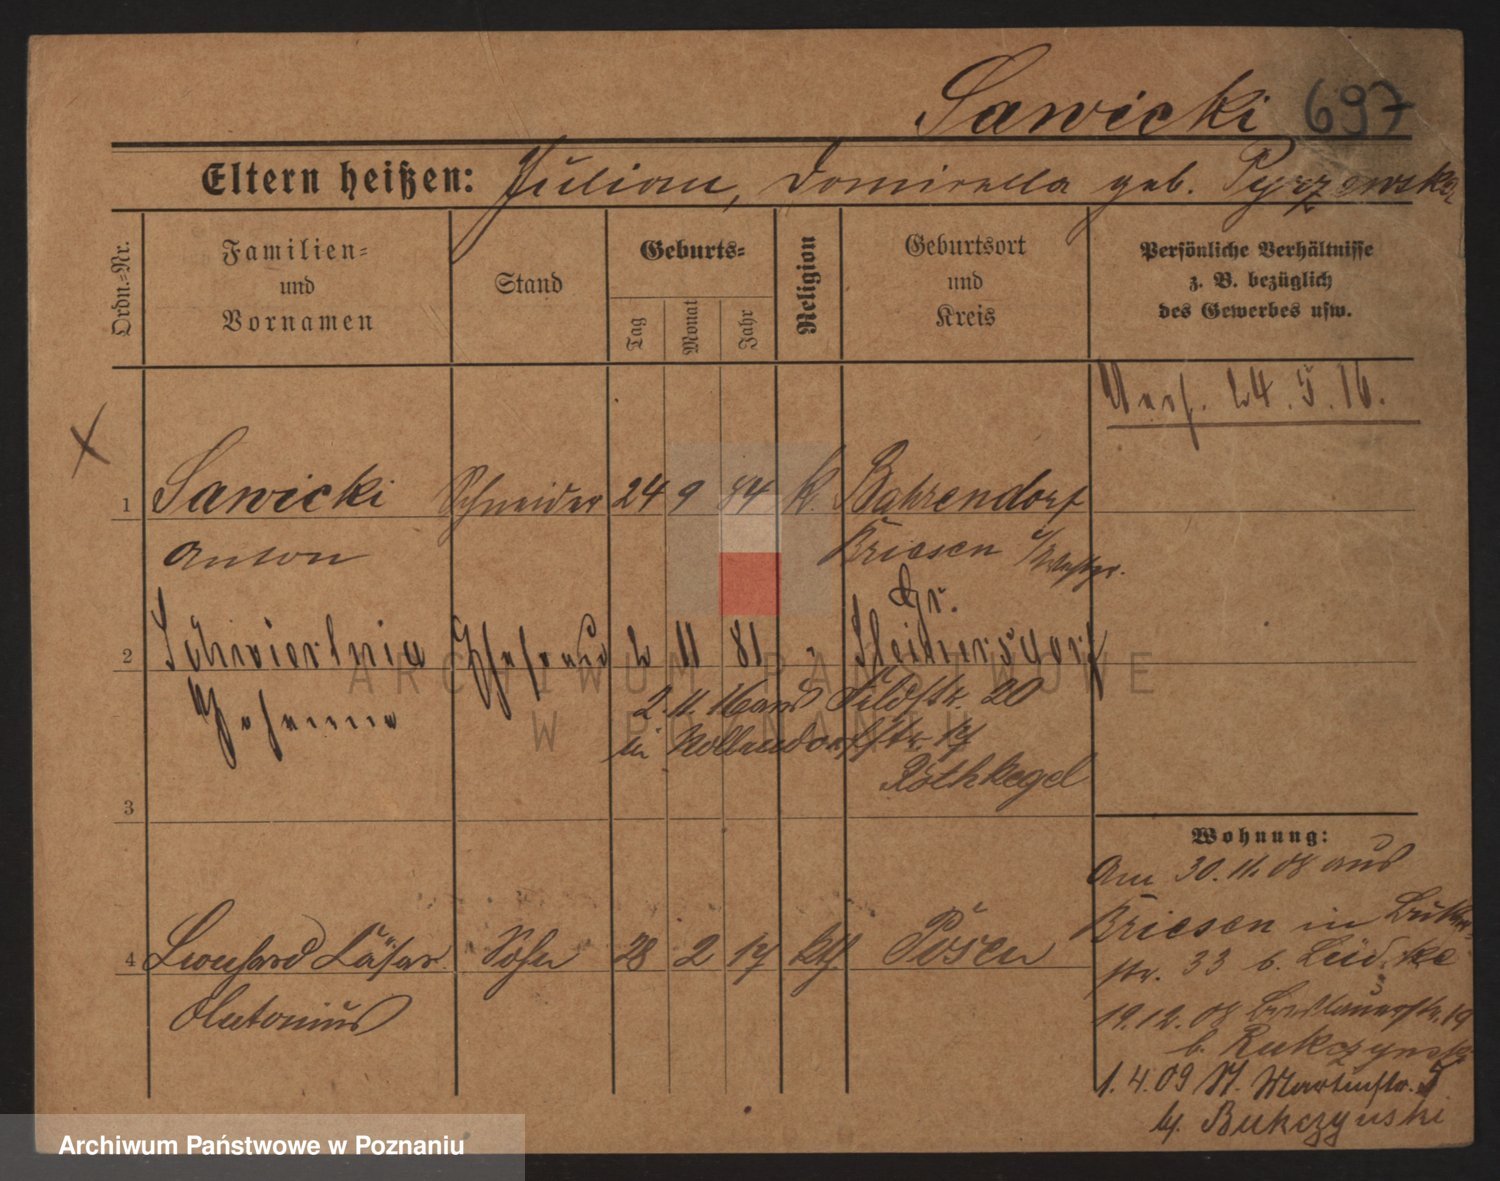 Sawicki 697
Eltern heißen: Julian, Domicella geb. Pyrzewska
Ordn.-Nr.
Familien-
und
Vornamen
Stand
Geburts-
Tag
Monat
Jahr
Religion
Geburtsort
und
Kreis
Persönliche Verhältnisse
z. B. bezüglich
des Gewerbes usw.
24.5.16.
1 Sawicki Schneider 24 9 84 k. Bahrendorf
Anton Briesen
Gr.
2 Ehefrau 2 11 81 " Steinersdorf
Johanna
2.11.16 aus Feldstr. 20
in Kollendorfstr. 17
Rothkegel
3
4 Leonhard Cäsar Sohn 28 2 17 kth. Posen
Antonius
Wohnung:
Am 30.11.08 aus
Briesen in
str. 33 b. Lüdtke
19.12.08 19
b. Bukczynski
1.4.09 St. Martinstr. 5
b. Bukczynski
ARCHIWUM PAŃSTWOWE
W POZNANIU
Archiwum Państwowe w Poznaniu